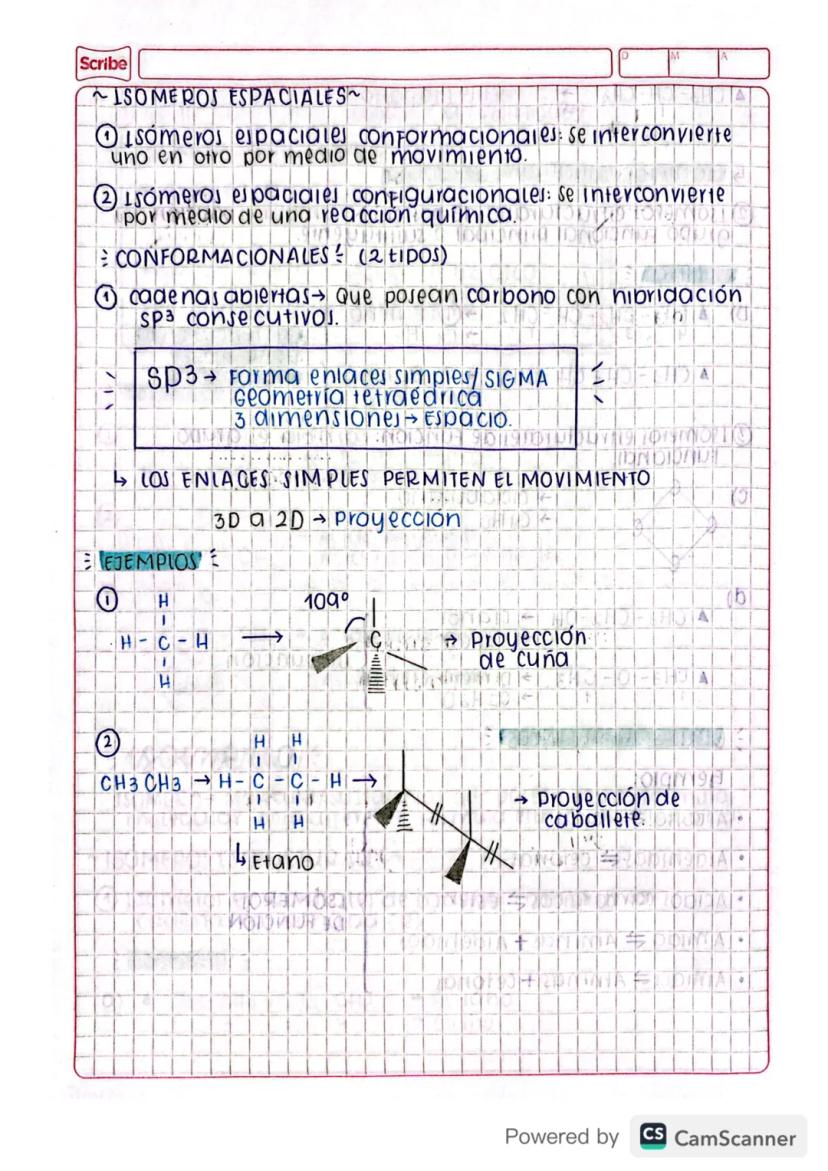 Scribe
D M A
~ISOMEROS ESPACIALES~
① Isómeros espaciales conformacionales: se interconvierte
uno en otro por medio de movimiento.
② Isómeros espaciales configuracionales: se interconvierte
por medio de una reacción química.
CONFORMACIONALES (2 tipos)
① cadenas abiertas→ Que posean carbono con hibridación
SP³ consecutivos.
SP3→ Forma enlaces simples/ SIGMA
Geometría tetraédrica
3 dimensiones→ Espacio.
↳ LOS ENLACES SIMPLES PERMITEN EL MOVIMIENTO
3D a 2D → Proyección
EJEMPLOS
① H
109°
H - C - H → C → Proyección
de cuña
H
② H H
CH3 CH3 → H - C - C - H → → Proyección de
caballete.
H H
↳ Etano
Powered by CS CamScanner